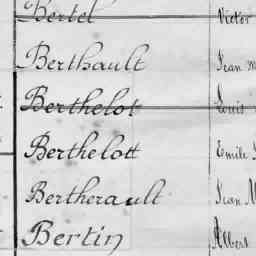 Bertel Victor
Berthault Jean
Berthelot Louis
Berthelott Emile
Bertherault Jean M
Bertin Albert